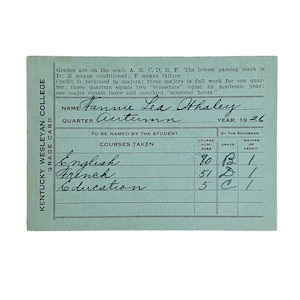 KENTUCKY WESLEYAN COLLEGE
GRADE CARD
Grades are on the scale A, B, C, D, E, F. The lowest passing mark is
D; E means conditioned; F means failure.
Credit is reckoned in majors; three majors is full work for one quar-
ter; three quarters equals two "semesters" equal an academic year;
one major equals three and one-third "semester hours"
NAME Fannie Lea Whaley
QUARTER Autumn YEAR, 1926
TO BE NAMED BY THE STUDENT BY THE RECORDER
COURSES TAKEN COURSE NUMBERS GRADE MAJORS OF CREDIT
English 90 B 1
French 51 D 1
Education 5 C 1